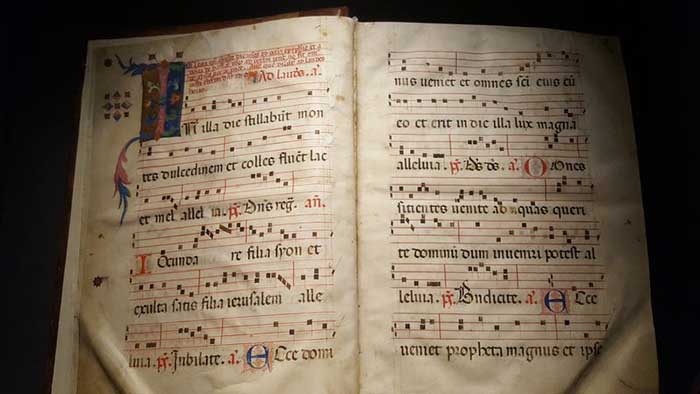 Ad laudes. a.
In illa die stillabūt mon
tes dulcedinem et colles fluēt lac
et mel alleluia ps. Dn̄s reg. an.
Iocunda re filia syon et
exulta satis filia ierusalem alle
luia. ps. Jubilate. a. Ecce domi
nus veniet et omnes sci eius cū
eo et erit in die illa lux magna
alleluia. ps. Ds ds. a. Omnes
sitientes venite ad aquas queri
te dominū dum inveniri potest al
leluia. ps. Bndicite. a. Ecce
veniet propheta magnus et ipse